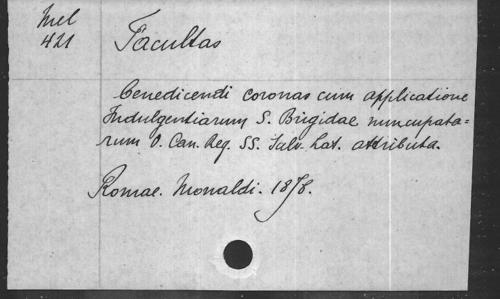 Mel
421
Facultas
benedicendi coronas cum applicatione
Indulgentiarum S. Brigidae nuncupata=
rum O. Can. Reg. SS. Salv. Lat. attributa.
Romae. Monaldi. 1878.